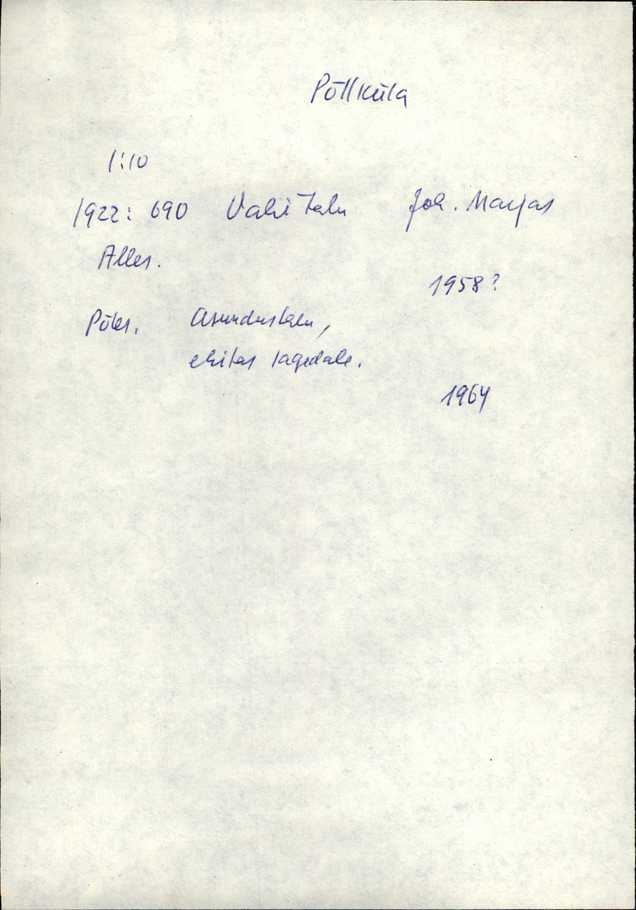 Põllküla
1:10
1922: 690 Vahi talu Joh. Marjas
Alles.
1958?
Põles. Asundustalu,
ehitas tagedale.
1964